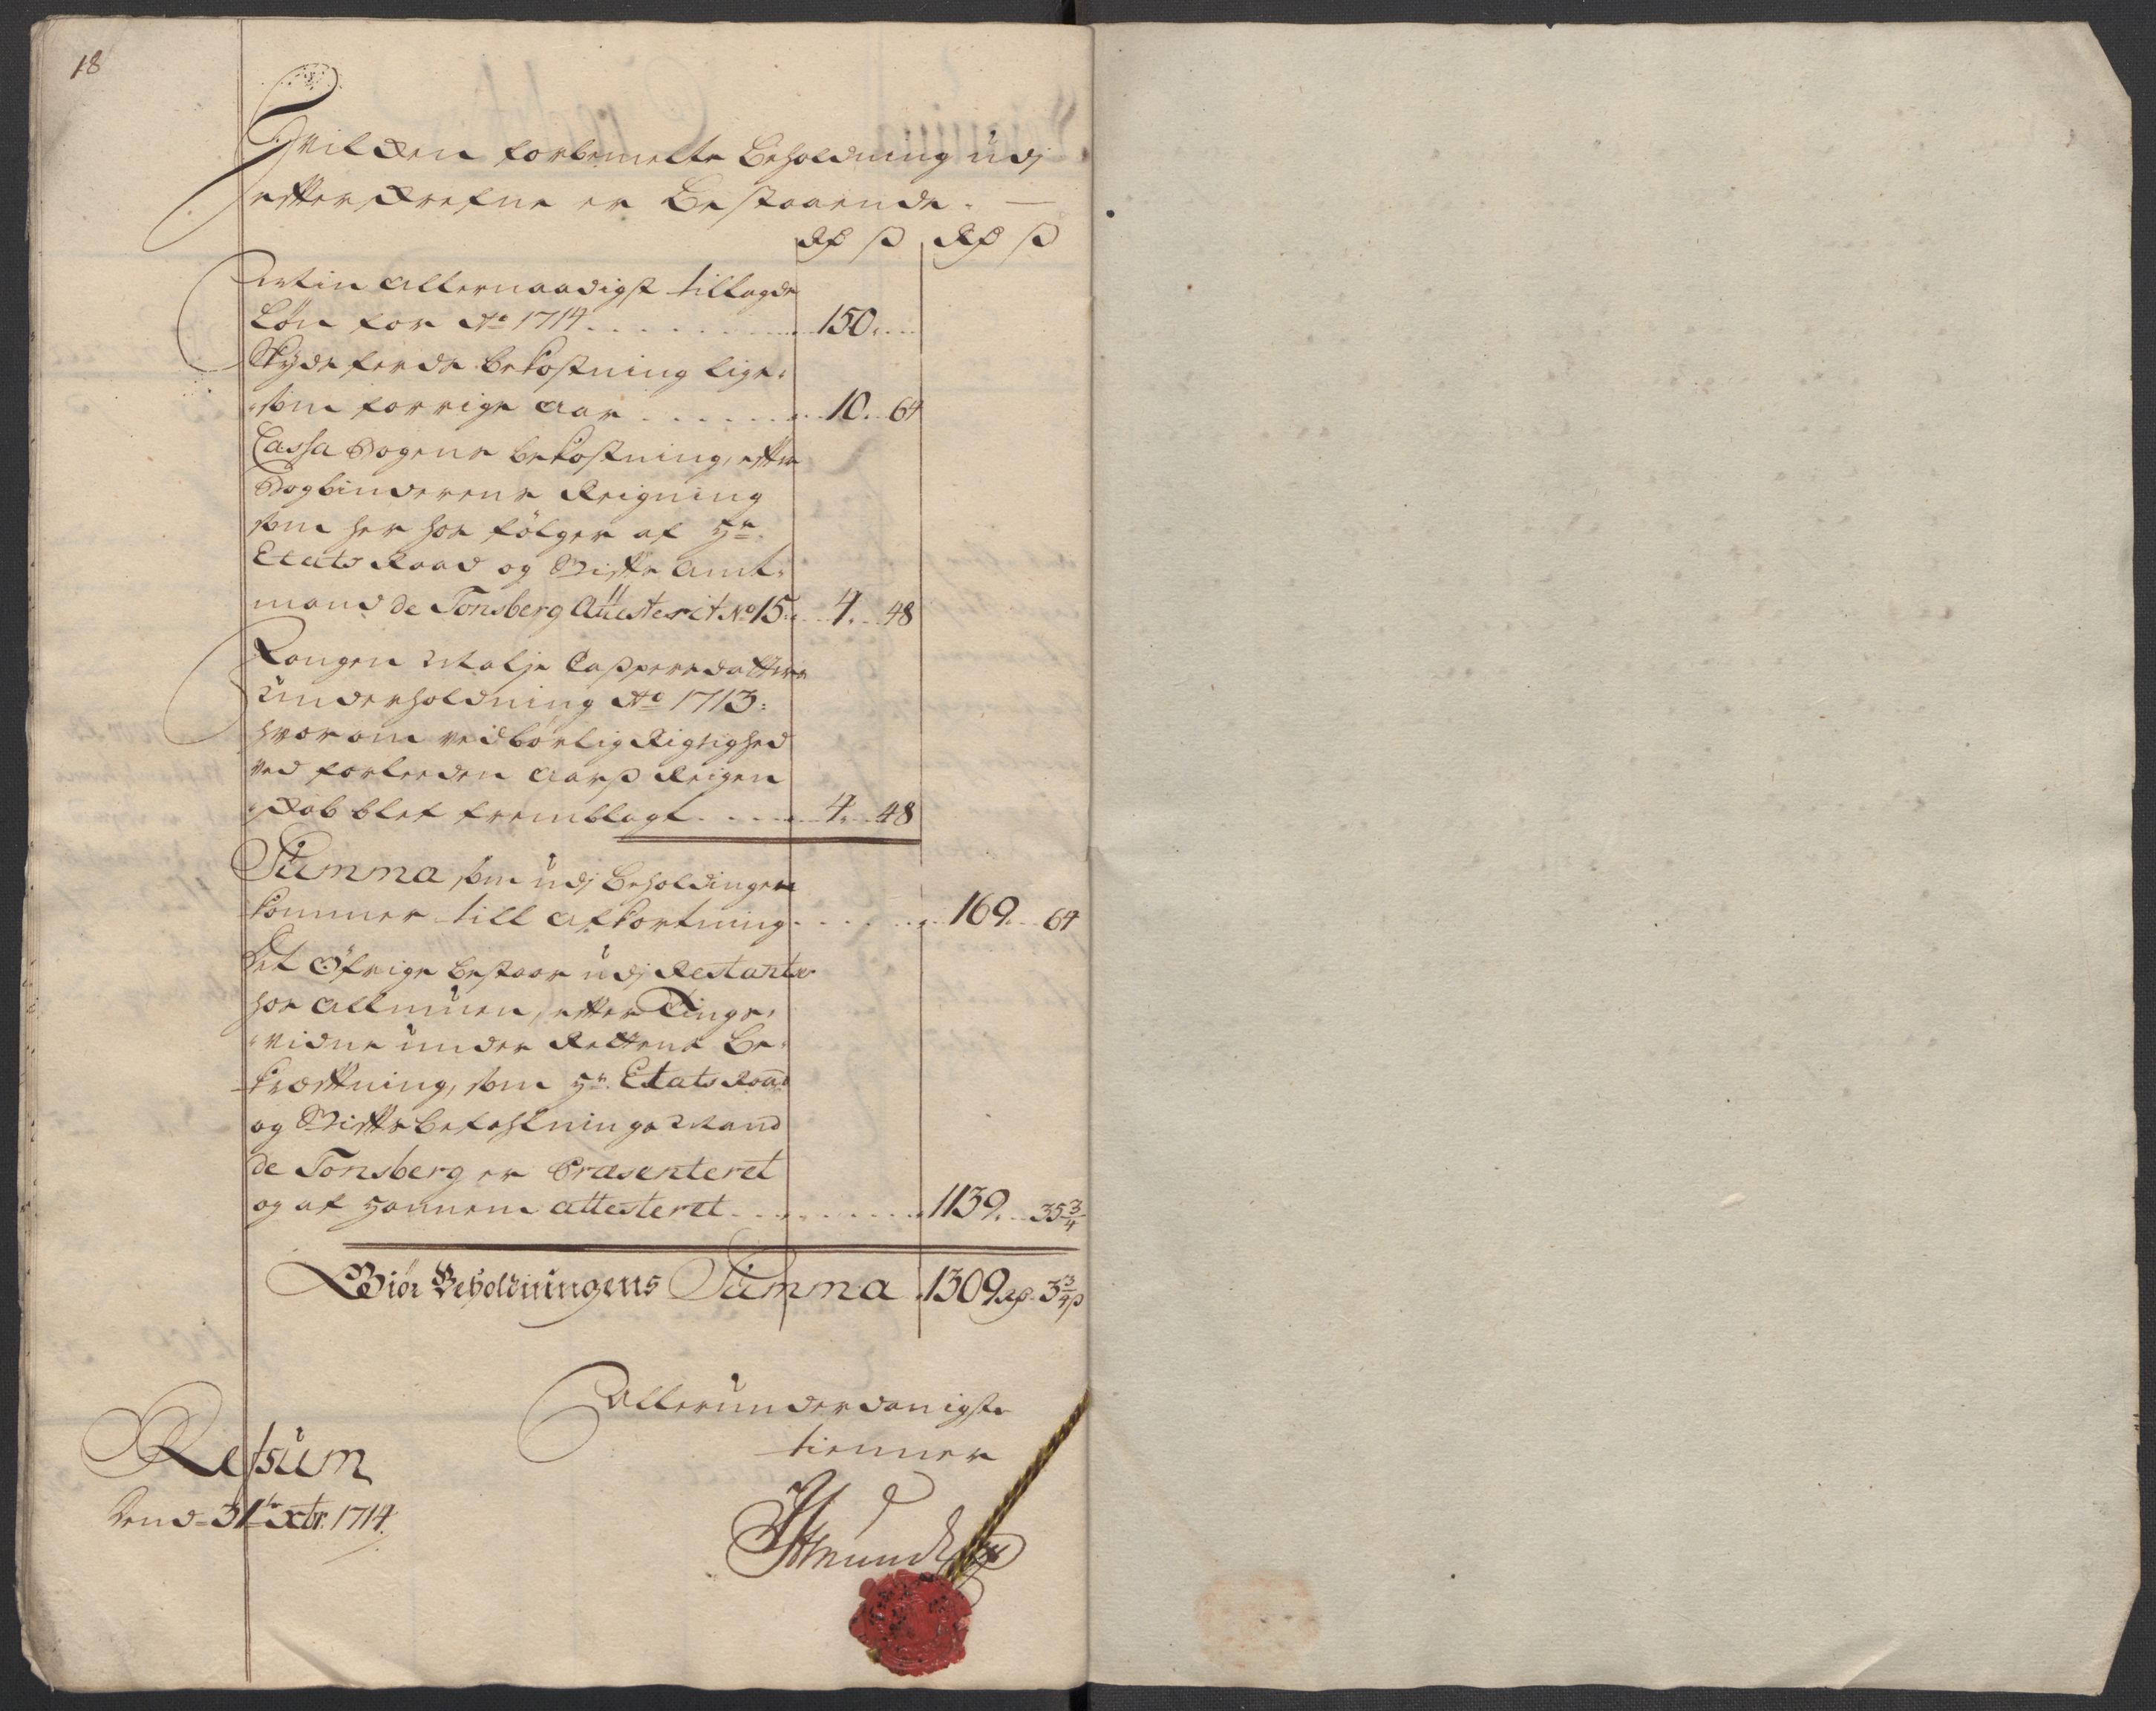 18
Hvilken forbemelte Beholdning udj
effterskrefne er Bestaaende.
Rd ß Rd ß
Min allernaadigst tillagde
Løn for Ao 1714 150
Skydsferds bekostning lige-
som forrige Aar 10. 64
Cassa Bogens bekostning, effter
Bogbinderens Reigning
som her hos følger af Hr.
Etats Raad og Stiffts Amt-
mand de Tonsberg Attesterit No 15. 4. 48
Fangen Malje Caspersdatters
Underholdning Ao 1713:
hvorom vedbørlig Rigtighed
ved forleeden Aars Reigen
skab blef fremblagt 4. 48
Summa som udj beholdingen
kommer till afkortning 169. 64
Det Øfrige bestaar udj Restantz
hos Allmuen, effter Tings-
vidne under Rettens Be-
kræfftning, som Hr. Etats Raad
og Stiffts befahlnings Mand
de Tonsberg er Præsenteret
og af hannem attesteret 1139. 35 3/4
Giør Beholdningens Summa 1309 Rd 3 3/4 ß
Allerunderdanigste
tienner
Refsum
Dend 31te Xbr. 1714.